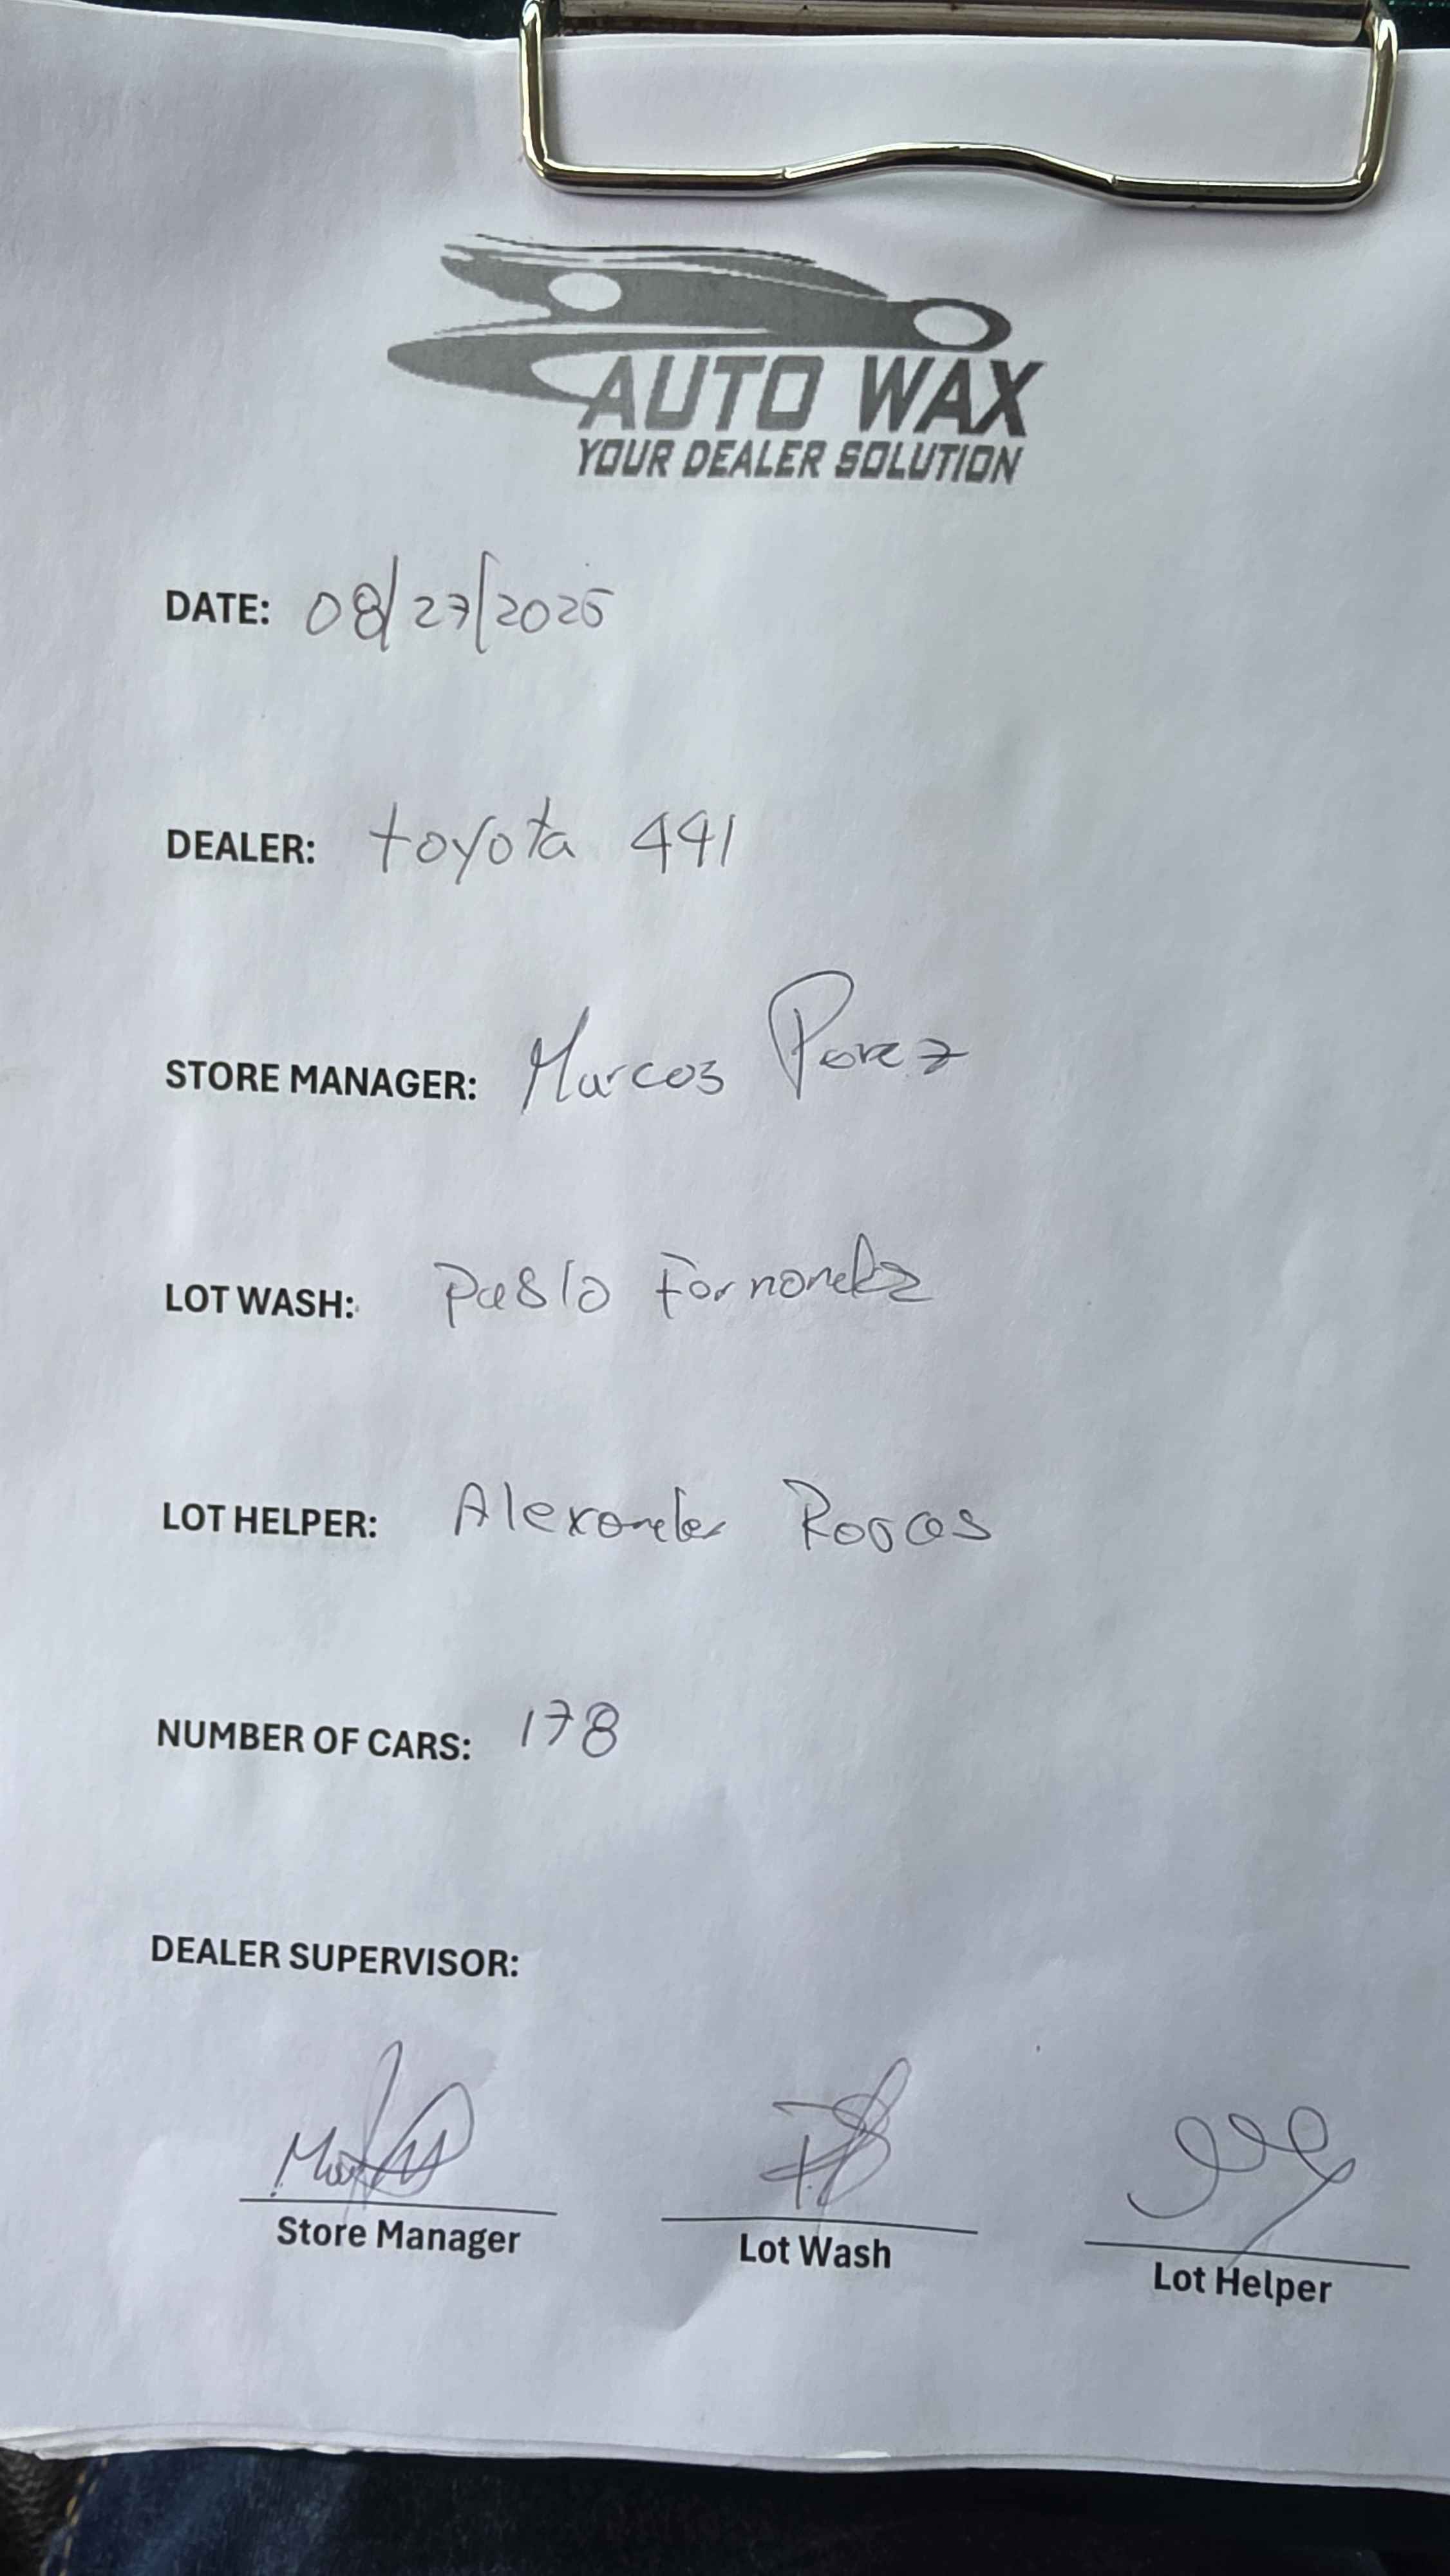 AUTO WAX
YOUR DEALER SOLUTION
DATE: 08/27/2025
DEALER: toyota 441
STORE MANAGER: Marcos Perez
LOT WASH: Pablo Fernandez
LOT HELPER: Alexander
NUMBER OF CARS: 178
DEALER SUPERVISOR:
Store Manager
Lot Wash
Lot Helper